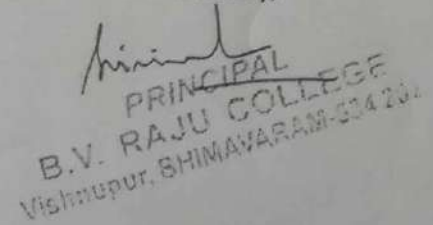 PRINCIPAL
B.V. RAJU COLLEGE
Vishnupur, BHIMAVARAM-534 202